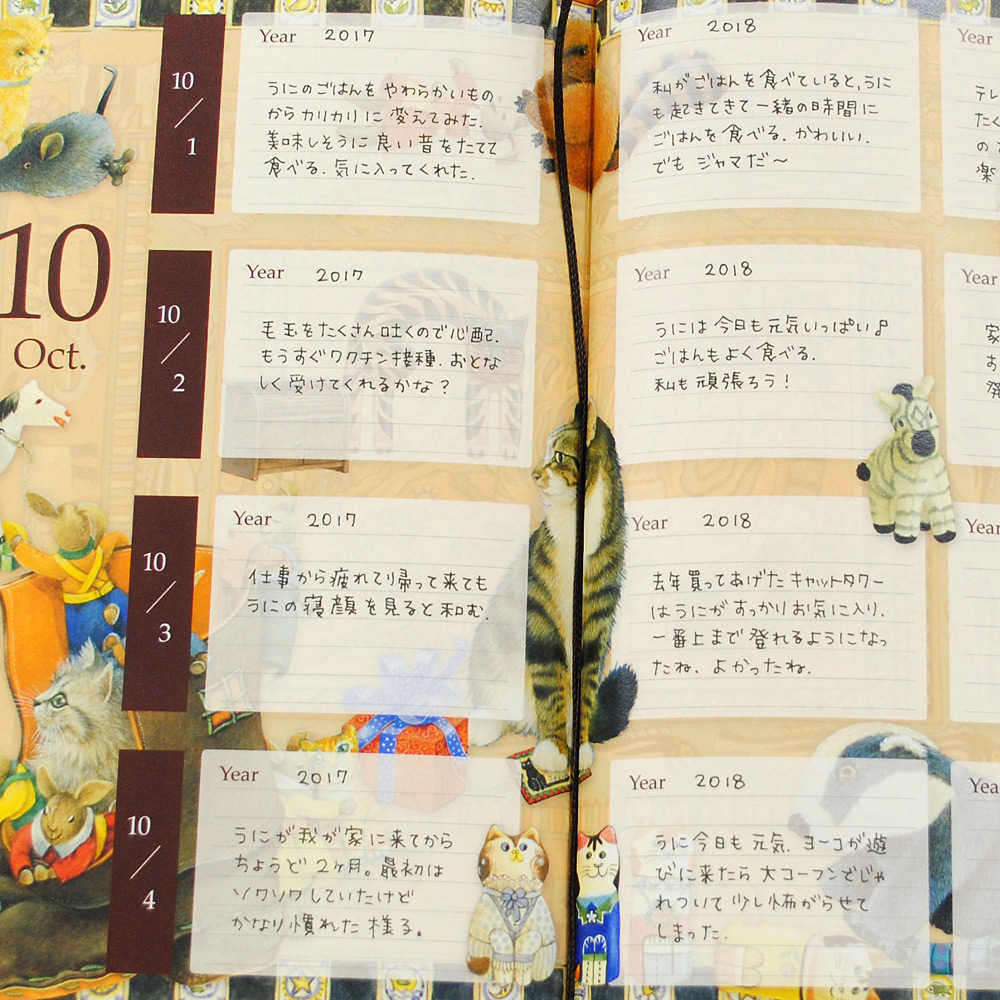 10
Oct.
10/1
Year 2017
うにのごはんを やわらかいもの
から カリカリ に 変えてみた.
美味しそうに 良い音をたてて
食べる. 気に入ってくれた.
Year 2018
私が ごはんを食べていると,うに
も起きてきて 一緒の時間に
ごはんを食べる. かわいい.
でも ジャマだ〜
Year
テレ
たく
の
楽
10/2
Year 2017
毛玉をたくさん吐くので心配.
もうすぐワクチン接種. おとな
しく受けてくれるかな?
Year 2018
うには 今日も元気いっぱい♪
ごはんもよく食べる.
私も頑張ろう!
Year
家
お
発
10/3
Year 2017
仕事から疲れて帰って来ても
うにの寝顔を見ると和む.
Year 2018
去年買ってあげた キャットタワー
はうにが すっかりお気に入り.
一番上まで 登れるようになっ
たね. よかったね.
Year
10/4
Year 2017
うにが我が家に来てから
ちょうど 2ヶ月。最初は
ソワソワしていたけど
かなり慣れた様子。
Year 2018
うに今日も元気. ヨーコが遊
びに来たら 大コーフンでじゃ
れついて 少し怖がらせて
しまった.
Year